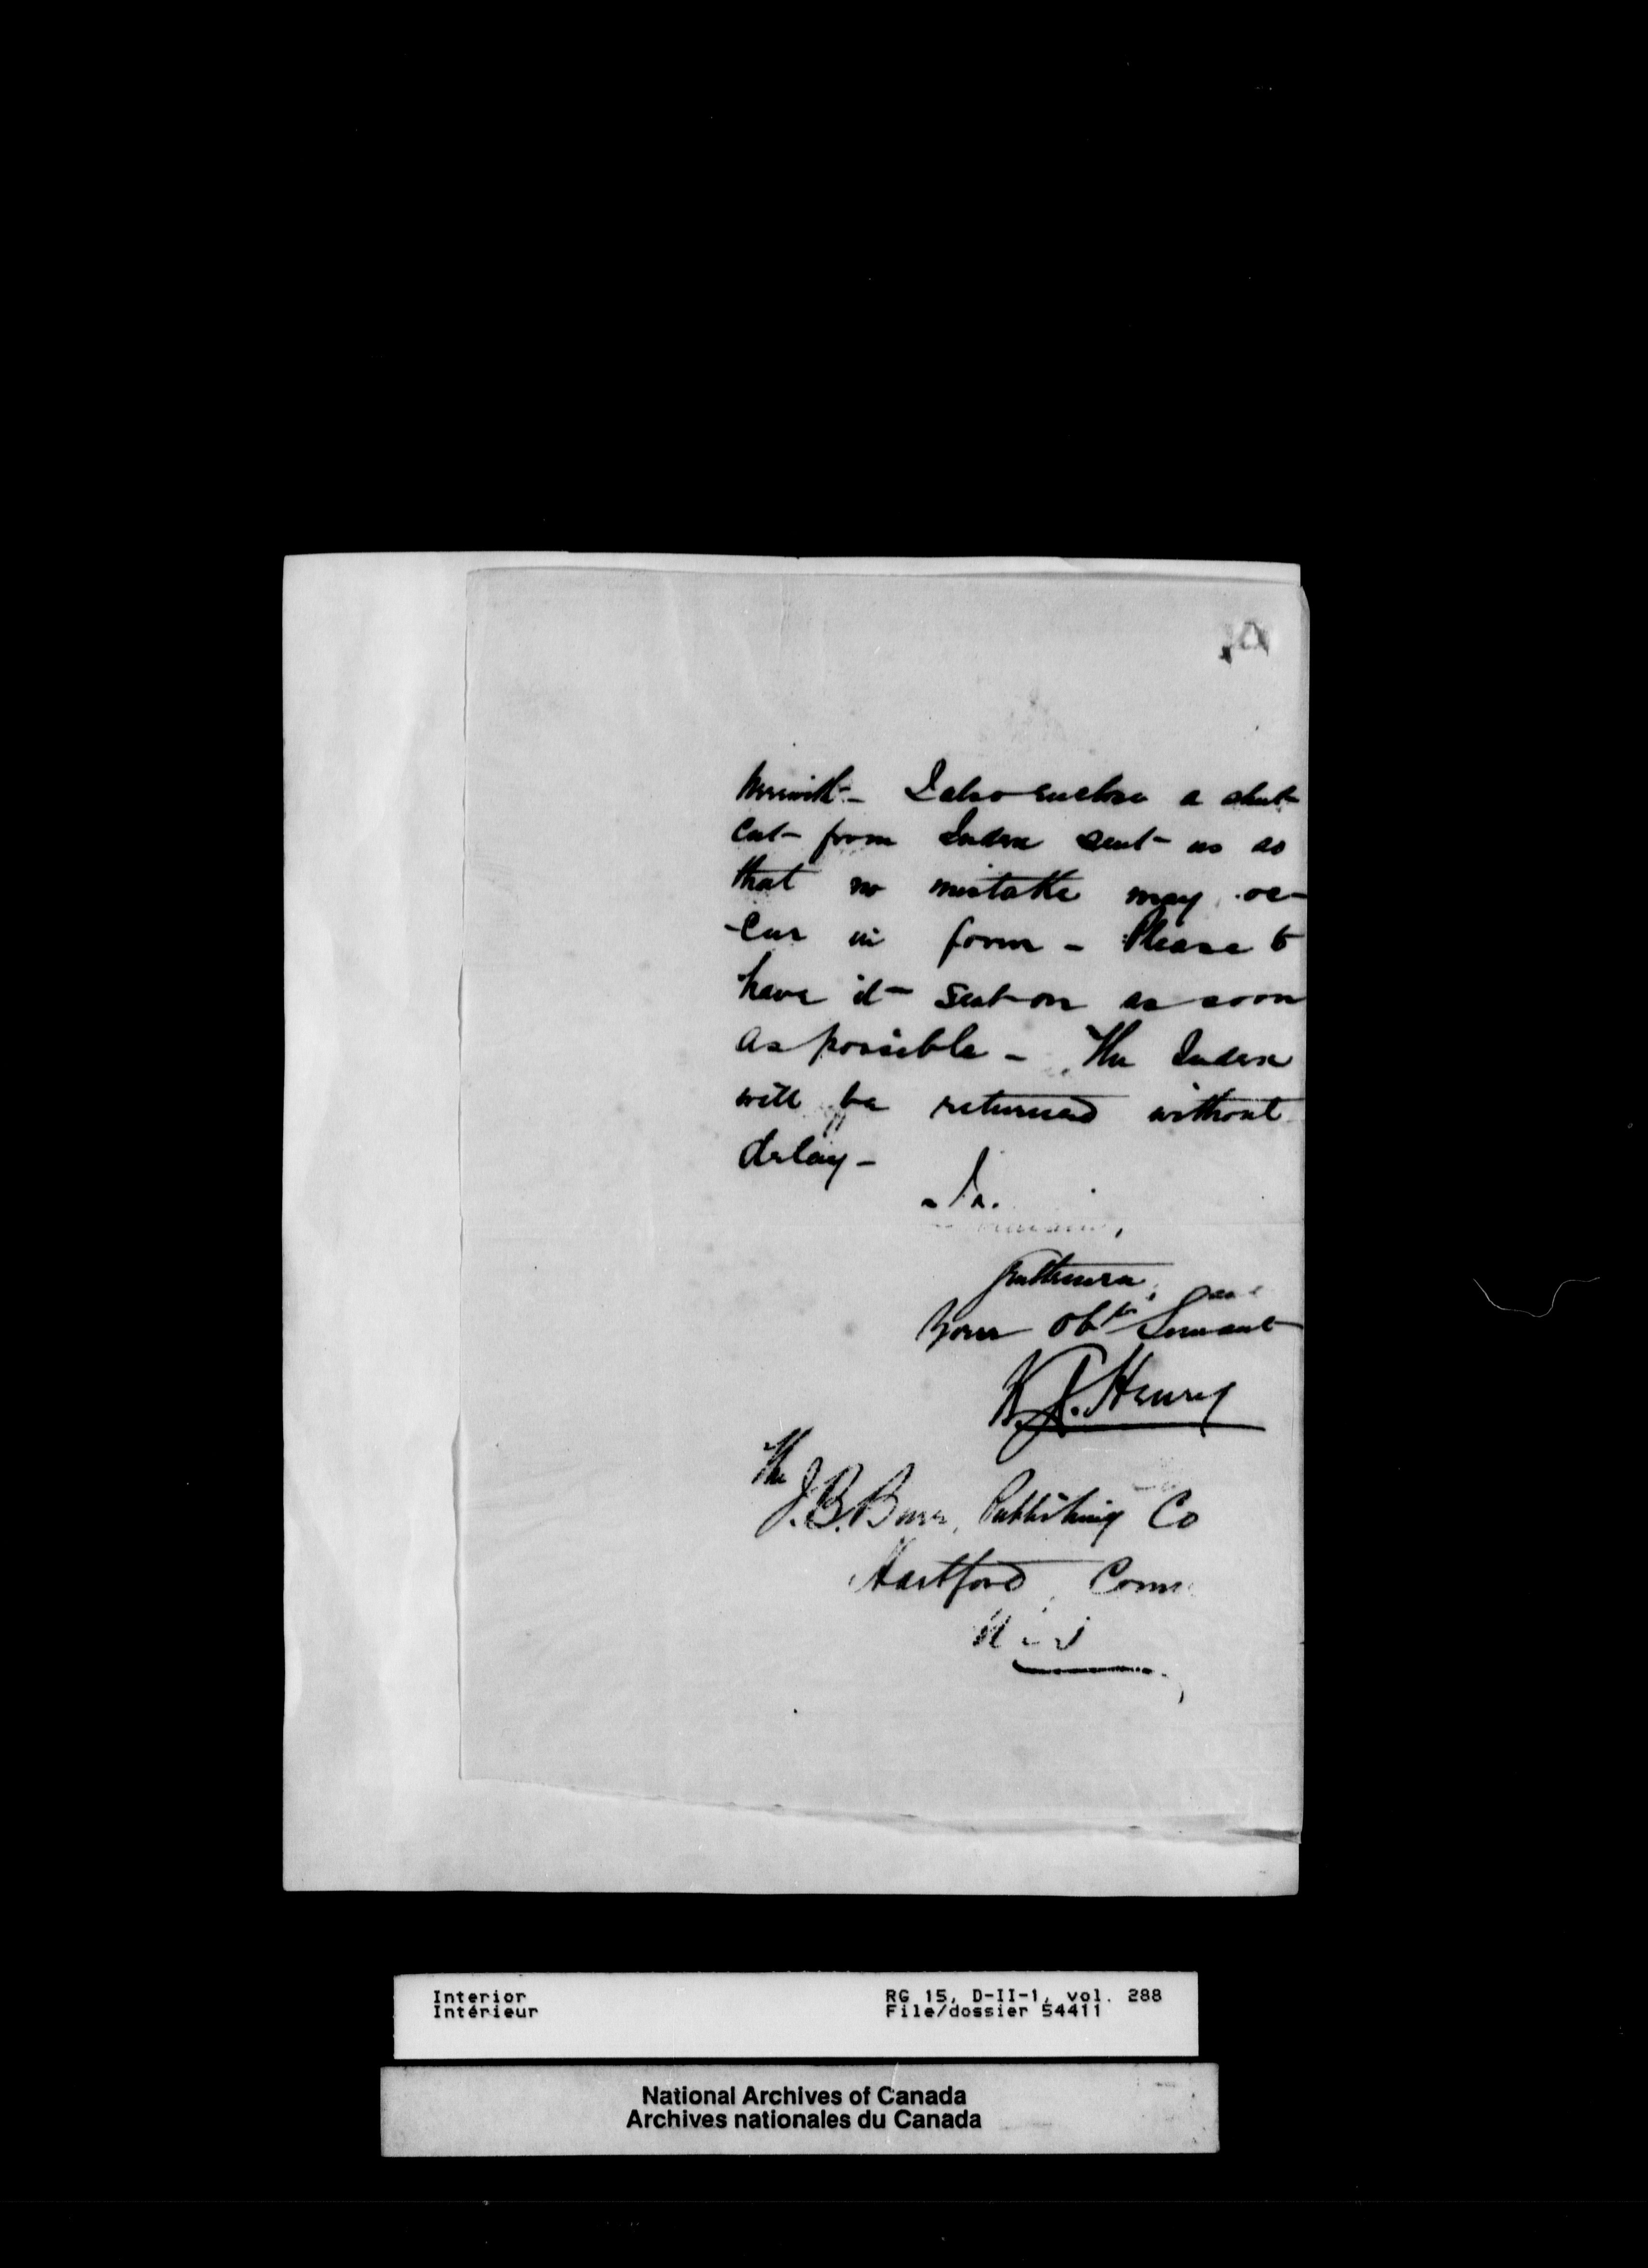 herewith - I also enclose a sheet
cut from Index sent us so
that no mistake may oc-
-cur in form - Please to
have it sent on as soon
as possible - The Index
will be returned without
delay -
Gentlemen,
Your Obt Servant
Henry
The
J.B. Burr, Publishing Co
Hartford, Conn
U S
Interior
Intérieur
RG 15, D-II-1, vol. 288
File/dossier 54411
National Archives of Canada
Archives nationales du Canada